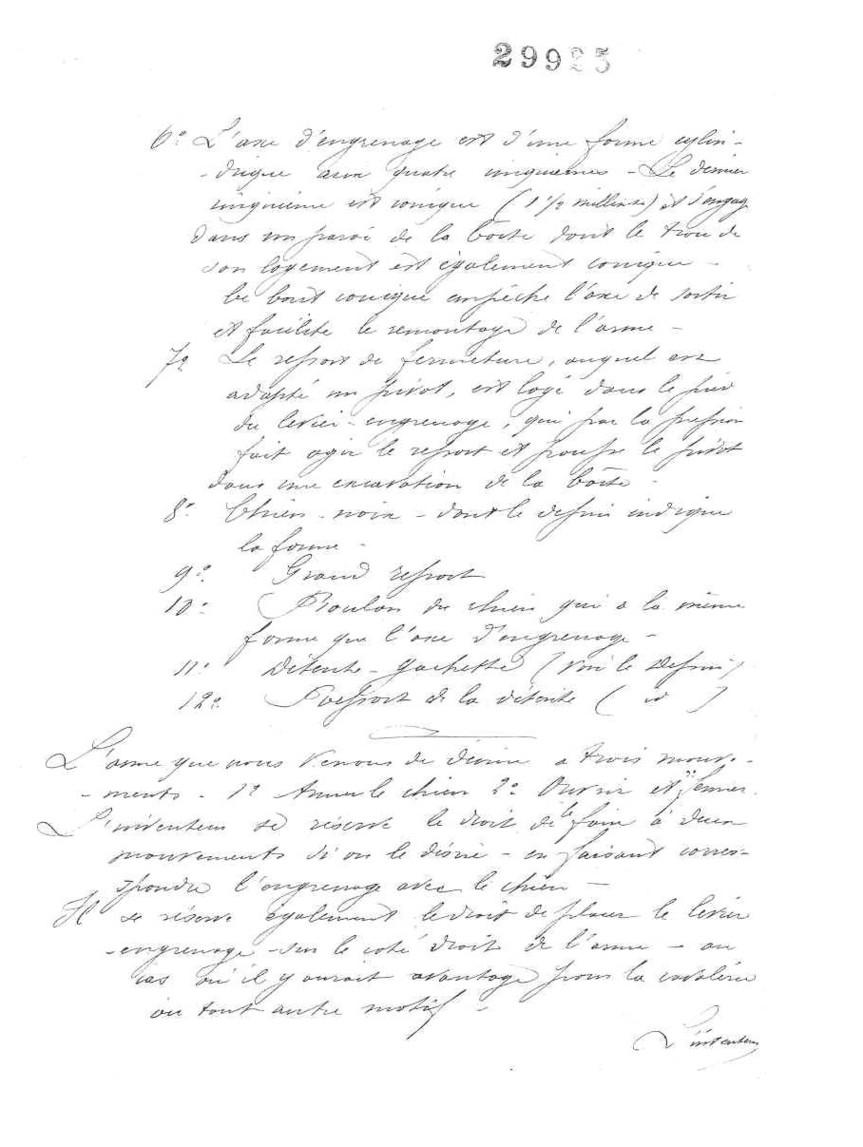 29925
6° L'axe d'engrenage est d'une forme cylin-
-drique aux quatre cinquièmes - Le dernier
cinquième est conique (1 1/2 millimte) et s'engage
dans un paroi de la boîte dont le trou de
son logement est également conique -
Ce bout conique empêche l'axe de sortir
et facilite le remontage de l'arme -
7° Le ressort de fermeture, auquel est
adapté un pivot, est logé dans le pied
du levier-engrenage, qui par la pression
fait agir le ressort et pousse le pivot
dans une excavation de la boîte -
8° Chien-noix - dont le dessin indique
la forme -
9° Grand ressort
10° Boulon du chien qui a la même
forme que l'axe d'engrenage -
11° Détente-gachette (voir le dessin)
12° Ressort de la détente (id)
L'arme que nous venons de décrire a trois mouve-
-ments - 1° Armer le chien 2° Ouvrir et 3° fermer.
L'inventeur se réserve le droit de le faire à deux
mouvements si on le désire - en faisant corres-
pondre l'engrenage avec le chien -
Il se réserve également le droit de placer le levier
-engrenage - sur le coté droit de l'arme - au
cas où il y aurait avantage pour la cavalerie
ou tout autre motif -
L'inventeur